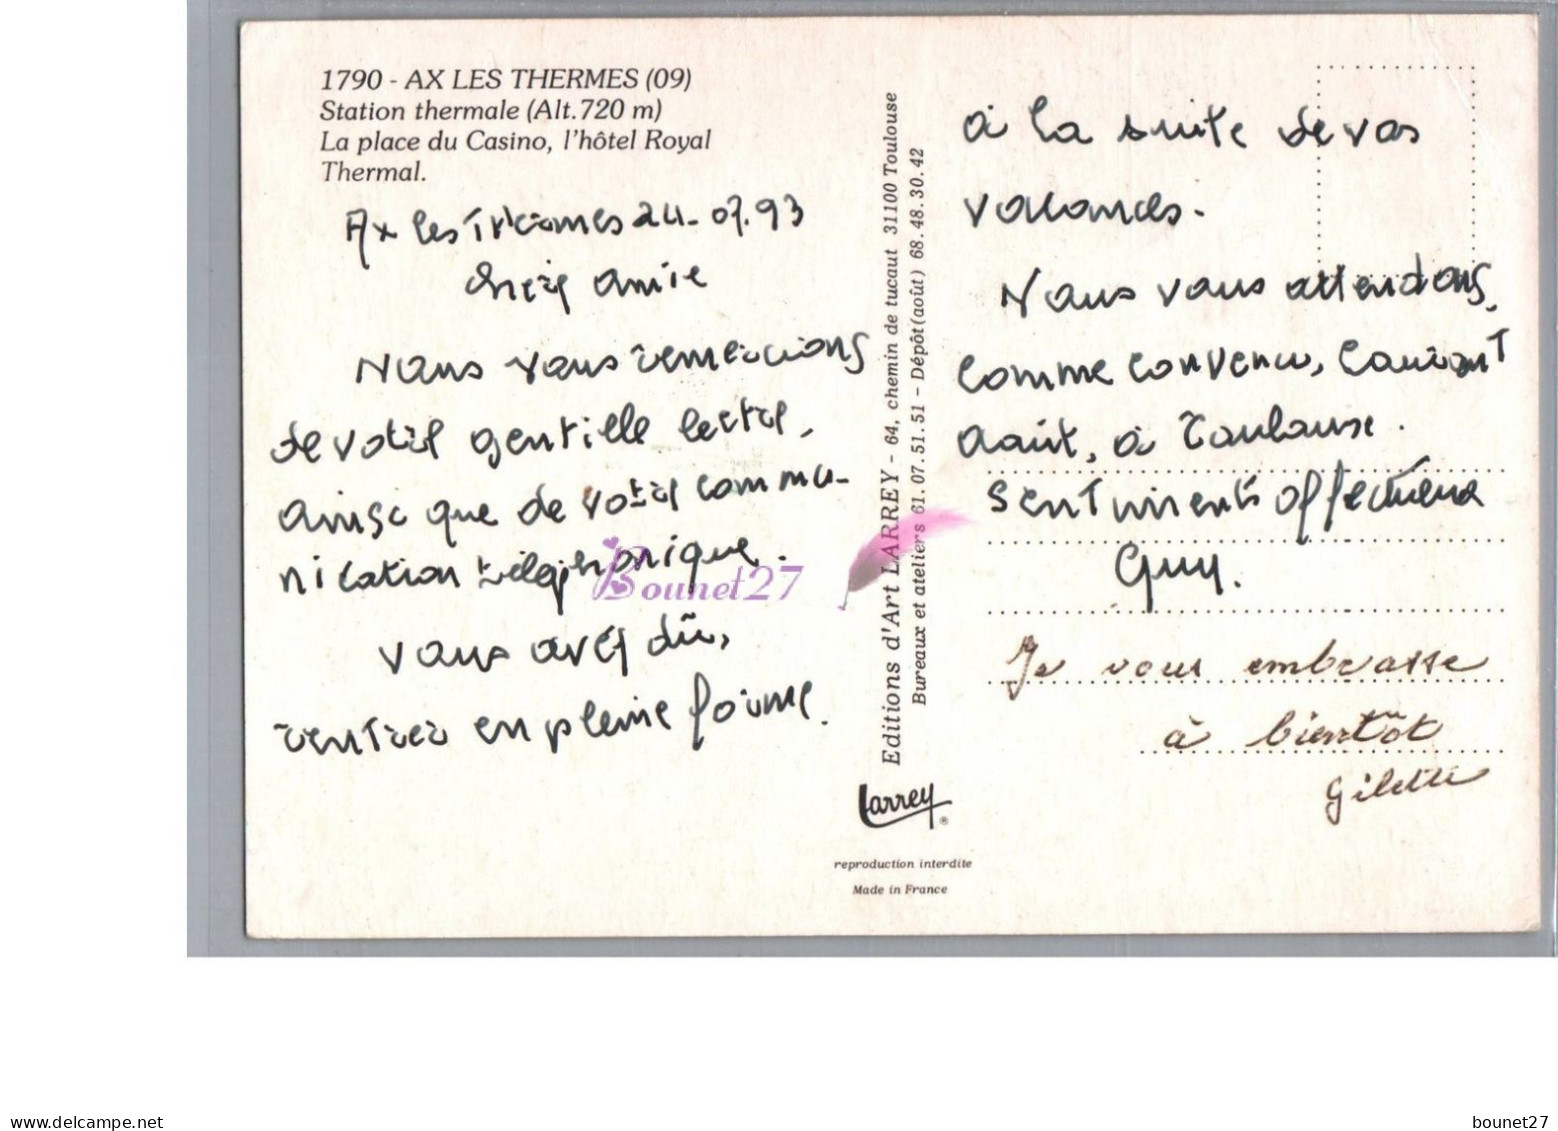 1790 - AX LES THERMES (09)
Station thermale (Alt. 720 m)
La place du Casino, l'hôtel Royal
Thermal.
Ax les Thermes 24-07.93
Chère amie
Nous vous remercions
de votre gentille lettre,
ainsi que de votre commu-
nication téléphonique.
Vous avez dû,
rentrer en pleine forme.
à la suite de vos
vacances.
Nous vous attendons,
comme convenu, courant
août, à Toulouse.
Sentiments affectueux
Guy.
Je vous embrasse
à bientôt
Gilette
Editions d'Art LARREY - 64, chemin de tucaut 31100 Toulouse
Bureaux et ateliers 61.07.51.51 - Dépôt (août) 68.48.30.42
Larrey ®
reproduction interdite
Made in France
Bounet27
www.delcampe.net
bounet27